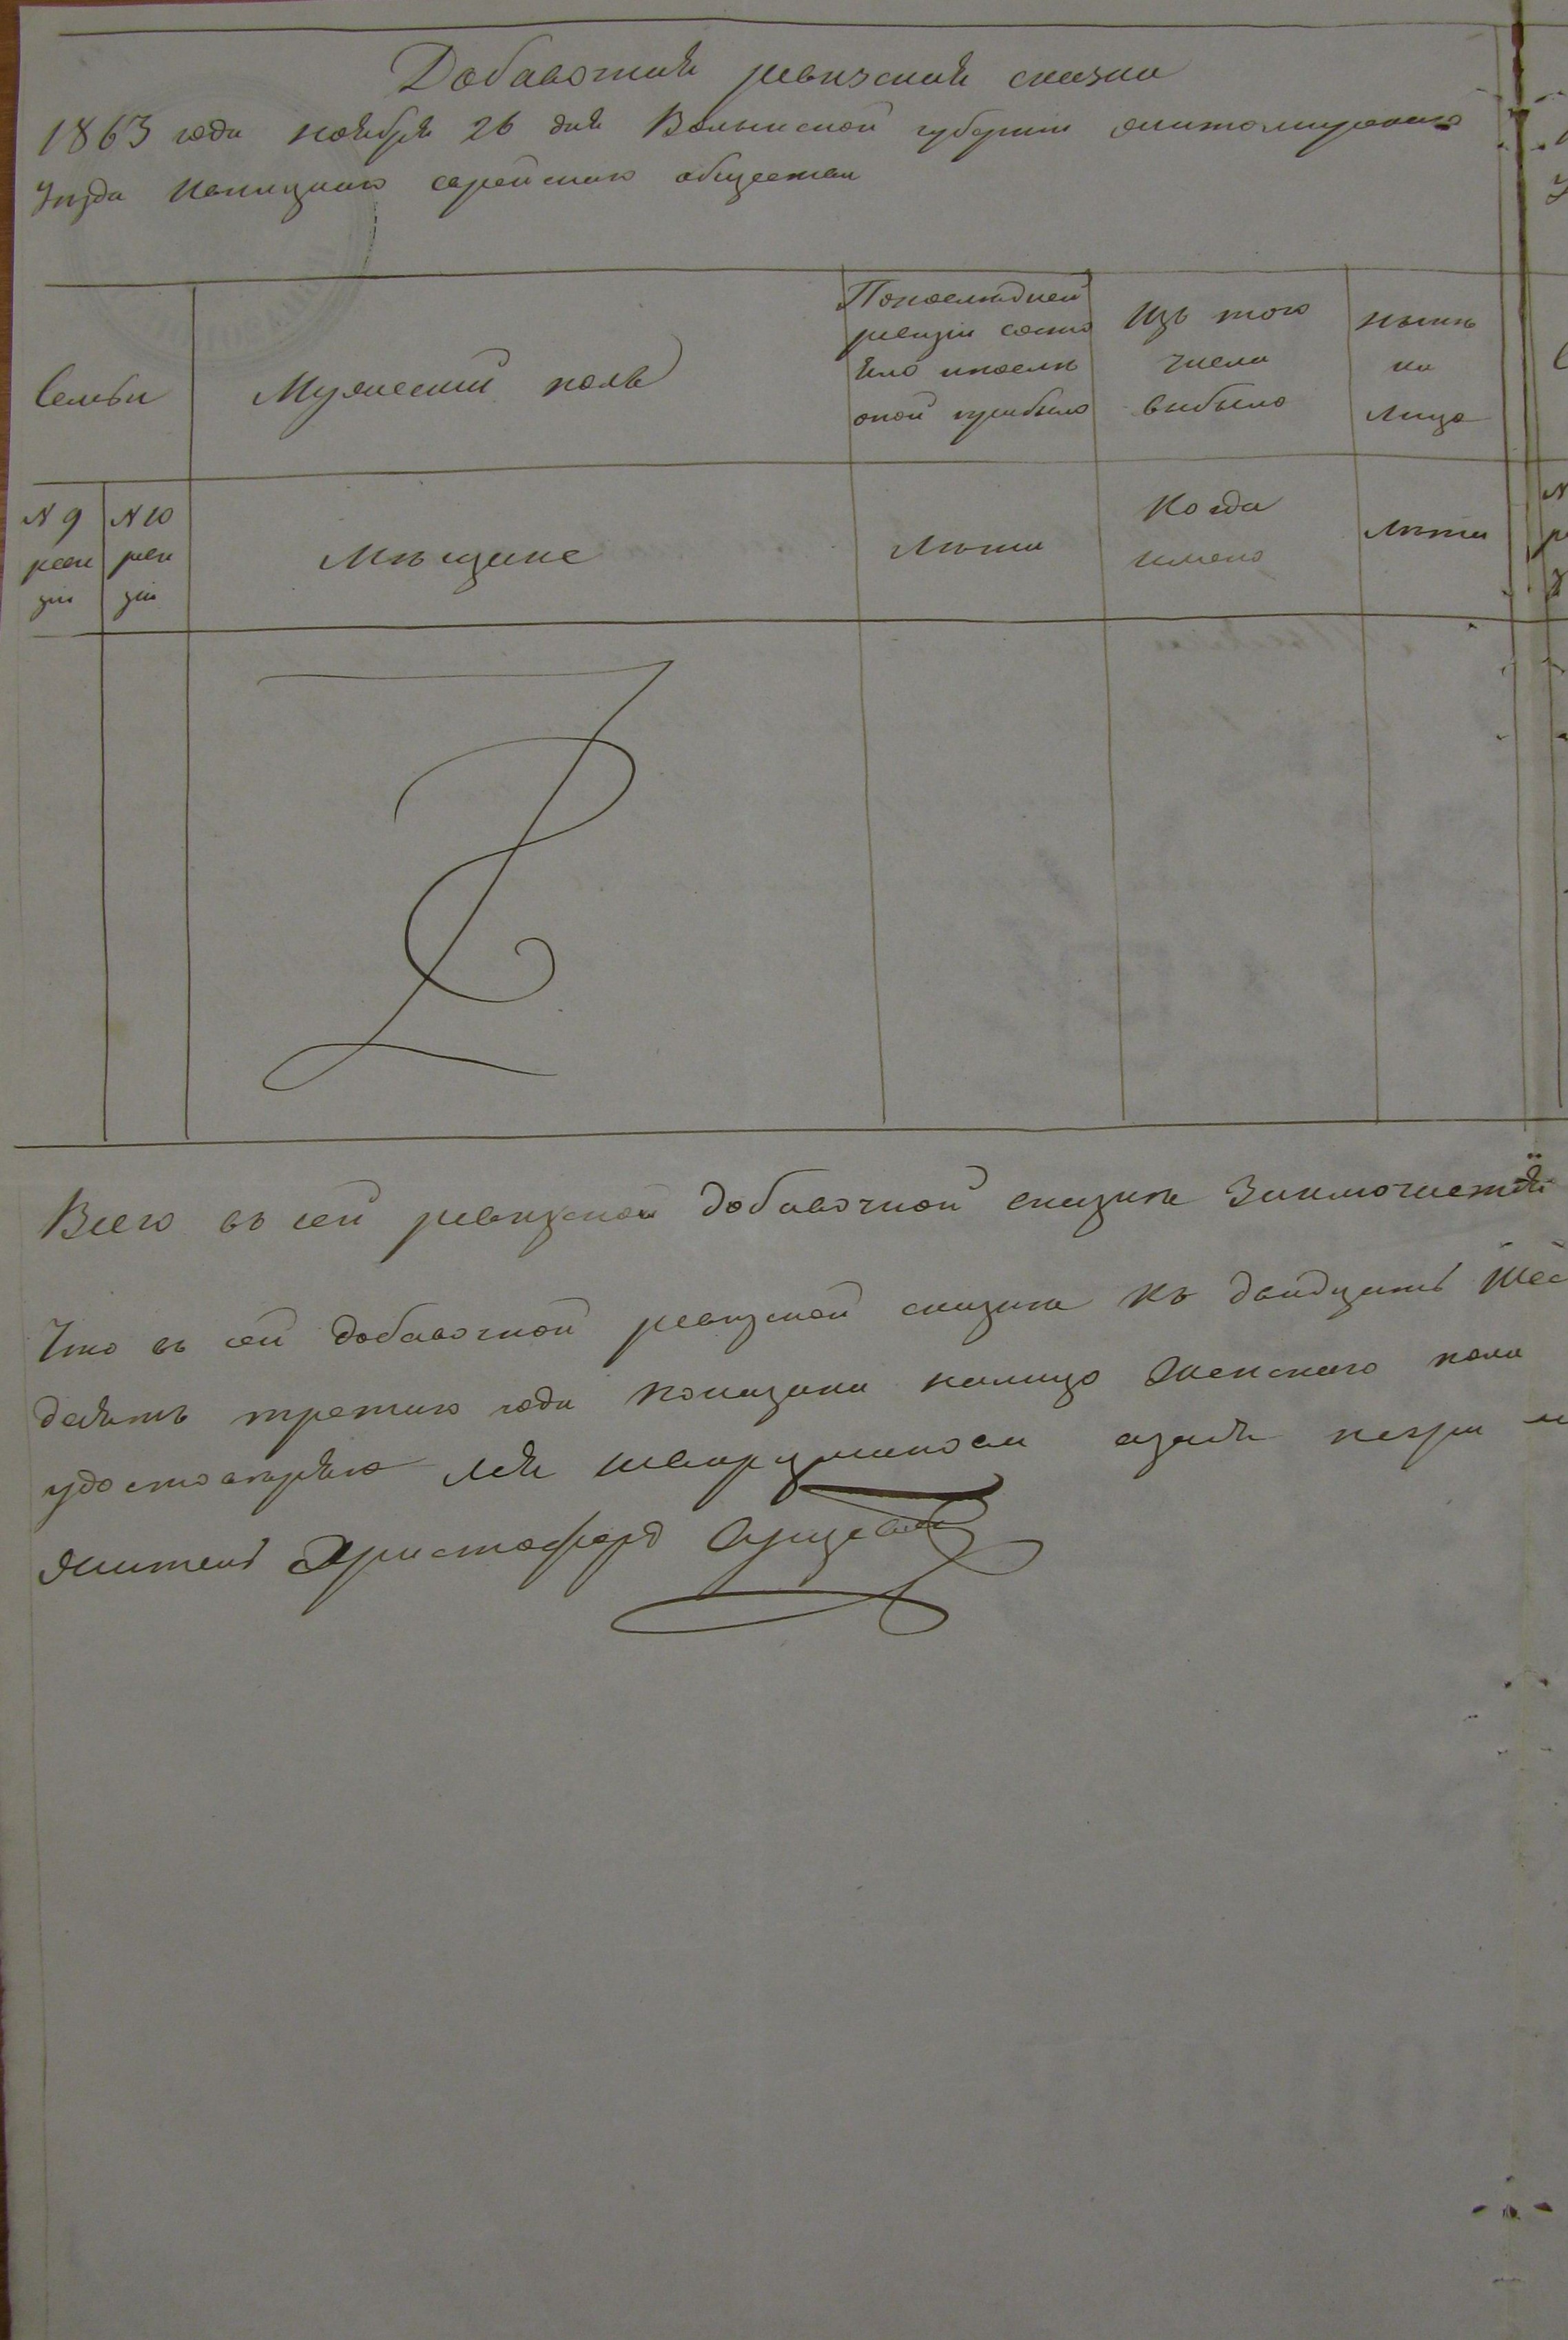 Добавочная ревизская сказка
1863 года ноября 26 дня Волынской губернии житомирскаго
Уезда еврейскаго общества
Семьи
Мужеский полъ
Попоследней
ревизіи состо
яло ипосле
оной прибыло
Изъ того
числа
выбыло
ныне
на
лицо
N 9
реви
зіи
N 10
реви
зіи
Мещане
Лета
Когда
имено
Лета
Всего въ сей ревизской добавочной сказке Заключается
Что въ сей добавочной ревизской сказке къ двадцать шес
десять третяго года показана налицо Женскаго пола
удостоверяю
житель Христофоръ